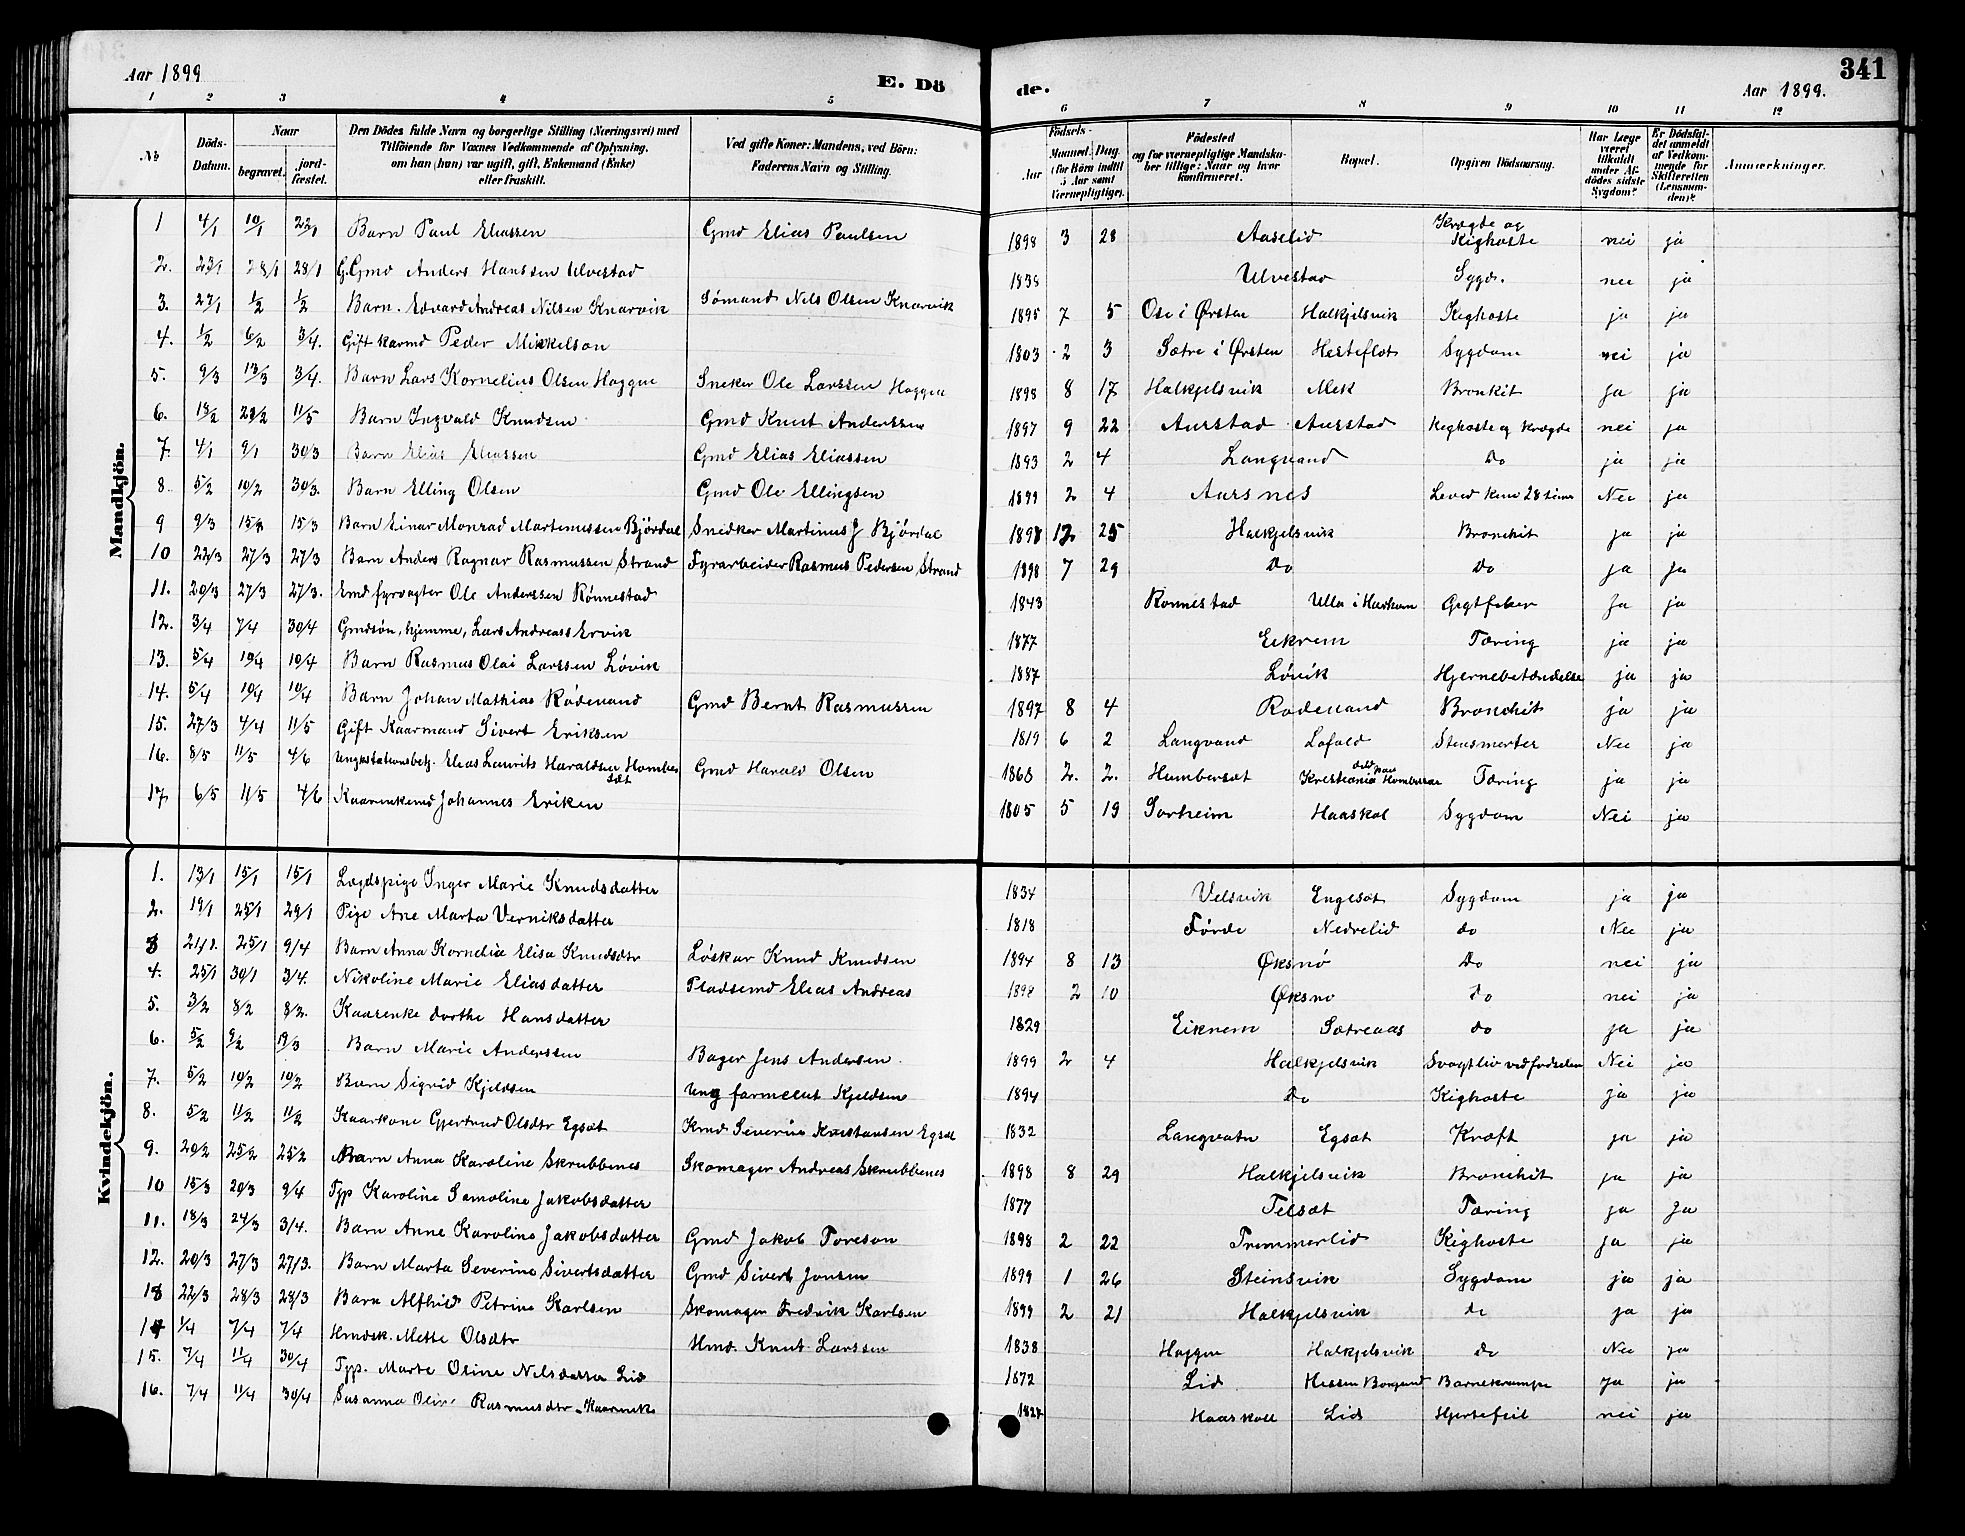 Aar 1899
E. Dö
de.
Aar 1899.
341
1 2 3 4 5 6 7 8 9 10 11 12
No
Döds-Datum.
Naar
begravet.
jord-fæstet.
Den Dödes fulde Navn og borgerlige Stilling (Næringsvei) med
Tilföiende for Voxnes Vedkommende af Oplysning,
om han (hun) var ugift, gift, Enkemand (Enke)
eller fraskilt.
Ved gifte Koner: Mandens, ved Börn:
Faderens Navn og Stilling.
Födsels-
Aar
Maaned. Dag.
(for Börn indtil
5 Aar samt
Værnepligtige).
Födested
og for værnepligtige Mandska-
ber tillige: Naar og hvor
konfirmeret.
Bopæl.
Opgiven Dödsaarsag.
Har Læge
været
tilkaldt
under Af-
dödes sidste
Sygdom?
Er Dödsfal-
det anmeldt
af Vedkom-
mende for
Skifteretten
(Lensman-
den)?
Anmærkninger.
Mandkjön.
1 4/1 10/1 22/1 Barn Paul Eliassen Gmd Elias Paulsen 1898 3 28 Aaselid Krægde og Kighoste nei ja
2. 23/1 28/1 28/1 G.Gmd Anders Hanssen Ulvestad 1838 Ulvestad Sygd. nei ja
3. 27/1 1/2 1/2 Barn. Edvard Andreas Nilsen Knarvik Sömand Nels Olsen Knarvik 1895 7 5 Ose i Ørsten Halkjelsvik Kighoste ja ja
4. 1/2 6/2 3/4. Gift karmd Peder Mikkelson 1803 2 3 Sætre i Ørsten Hesteflot Sygdom nei ja
5. 9/3 13/3 3/4. Barn Lars Kornelius Olsen Haggen Sneker Ole Larssen Haggen 1898 8 17 Halkjelsvik Mek Bronkit ja ja
6. 22/2 11/5 Barn Ingvald Knudsen Gmd Knut Anderssen 1897 9 22 Aurstad Aurstad Kighoste og Krægde nei ja
7. 4/1 9/1 30/3 Barn Elias Eliassen Gmd Elias Eliassen 1893 2 4 Langvand Do ja ja
8. 5/2 10/2 30/3. Barn Elling Olsen Gmd Ole Ellingsen 1899 2 4 Aarsnes Leved kun 28 timer Nei ja
9 9/3 15/3 15/3 Barn Einar Monrad Martinussen Bjørdal Snedker Martinus J Bjørdal 1897 12 25 Halkjelsvik Bronchit ja ja
10 22/3 27/3 27/3 Barn Anders Ragnar Rasmussen Strand Fyrarbeider Rasmus Pedersen Strand 1898 7 29 Do Do ja ja
11. 20/3 27/3 27/3. Emd fyrvogter Ole Anderssen Rönnestad 1843 Ronnestad Ulla i Harham Gigtfeber ja ja
12. 3/4 7/4 30/4 Gmdsön, hjemme, Lars Andreass Ervik 1877 Eikrem Tæring ja ja
13. 5/4 10/4 10/4 Barn Rasmus Olai Larssen Løvik 1887 Løvik Hjernebetændelse ja ja
14. 5/4 10/4 10/4 Barn Johan Mathias Rödenand Gmd Bernt Rasmussen 1897 8 4 Rodenand Bronchit ja ja
15. 27/3 4/4 11/5 Gift Kaarmand Sivert Eriksen 1819 6 2 Langvand Lofald Stensmerter Nei ja
16. 8/5 11/5 4/6 Ungkstationsbetj. Elias Laurits Haraldsen Hombersæt Gmd Harald Olsen 1868 2. 2. Humbersæt Kristiania Tæring ja ja
17. 6/5 11/5 4/6 Kaarenkemd Johannes Eriken 1805 5 19 Sorheim Haaskol Sygdom Nei ja
Kvindekjön.
1. 13/1 15/1 15/1 Lægdspige Inger Marie Knudsdatter 1834 Velsvik Engesæt Sygdom ja ja
2. 19/1 25/1 29/1 Pige Ane Marta Verniksdatter 1818 Førde Nedrelid do Nei ja
3 21/1. 25/1 9/4 Barn Anna Kornelia Elisa Knudsdtr Løskar Knud Knudsen 1894 8 13 Øksnö Do nei ja
4. 25/1 30/1 3/4. Nikoline Marie Eliasdatter Pladsemd Elias Andreas 1898 2 10 Øksno do nei ja
5. 3/2 8/2 8/2. Kaarenke Dorthe Hansdatter 1829 Eiknem Sætreaas do ja ja
6. 5/2 9/2 19/3 Barn Marie Anderssen Bager Jens Andersen. 1899 2 4 Halkjelsvik Svagtliv ved fødselen Nei ja
7. 5/2 10/2 10/2 Barn Sigrid Kjeldsen Kjeldsen 1894 Do Kighoste ja ja
8. 5/2 11/2 11/2 Kaarkone Gjertrud Olsdtr Egsæt Kmd Severin Kristansen Egsæt 1832 Langvatn Egsæt Kræft ja ja
9. 20/2 25/2 25/2 Barn Anna Karoline Skrubbenes Skomager Andreas Skrubbenes 1898 8 29 Halkjelsvik Bronchit ja ja
10 15/3 20/3 9/4 Typ Karoline Samoline Jakobsdatter 1877 Felsæt Tæring ja Ja
11. 18/3 24/3 3/4. Barn Anne Karoline Jakobsdatter Gmd Jakob Toreson 1898 2 22 Tremmerlid Kighoste ja ja
12. 20/3 27/3 27/3. Barn Marta Severine Sivertsdatter Gmd Sivert Jonsen 1899 1 26 Steinsvik Sygdom ja ja
13 22/3 28/3 28/3 Barn Alfhild Petrine Karlsen Skomager Fredrik Karlsen 1899 2 21 Halkjelsvik do ja ja
14 1/4 7/4 7/4 Hmdsk. Mette Olsdtr Hmd. Knut Larssen 1838 Haggen Halkjelsvik do Nei ja
15. 7/4 11/4 30/4 Typ. Marte Oline Nilsdatter Lid 1872 Lid Hessen Borgund Barnekrampe ja ja
16. 7/4 11/4 30/4 Susanna Rasmusdtr Kaarenke 1827 Haaskoll Lid Hjertefeil nei ja